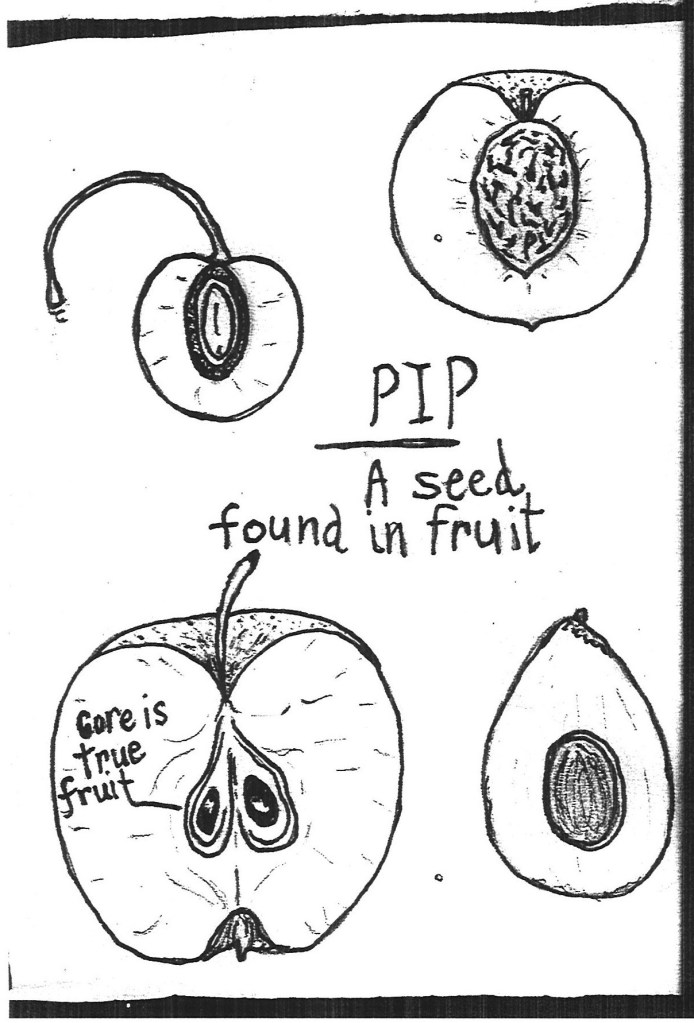 PIP
A seed
found in fruit
Core is
true
fruit